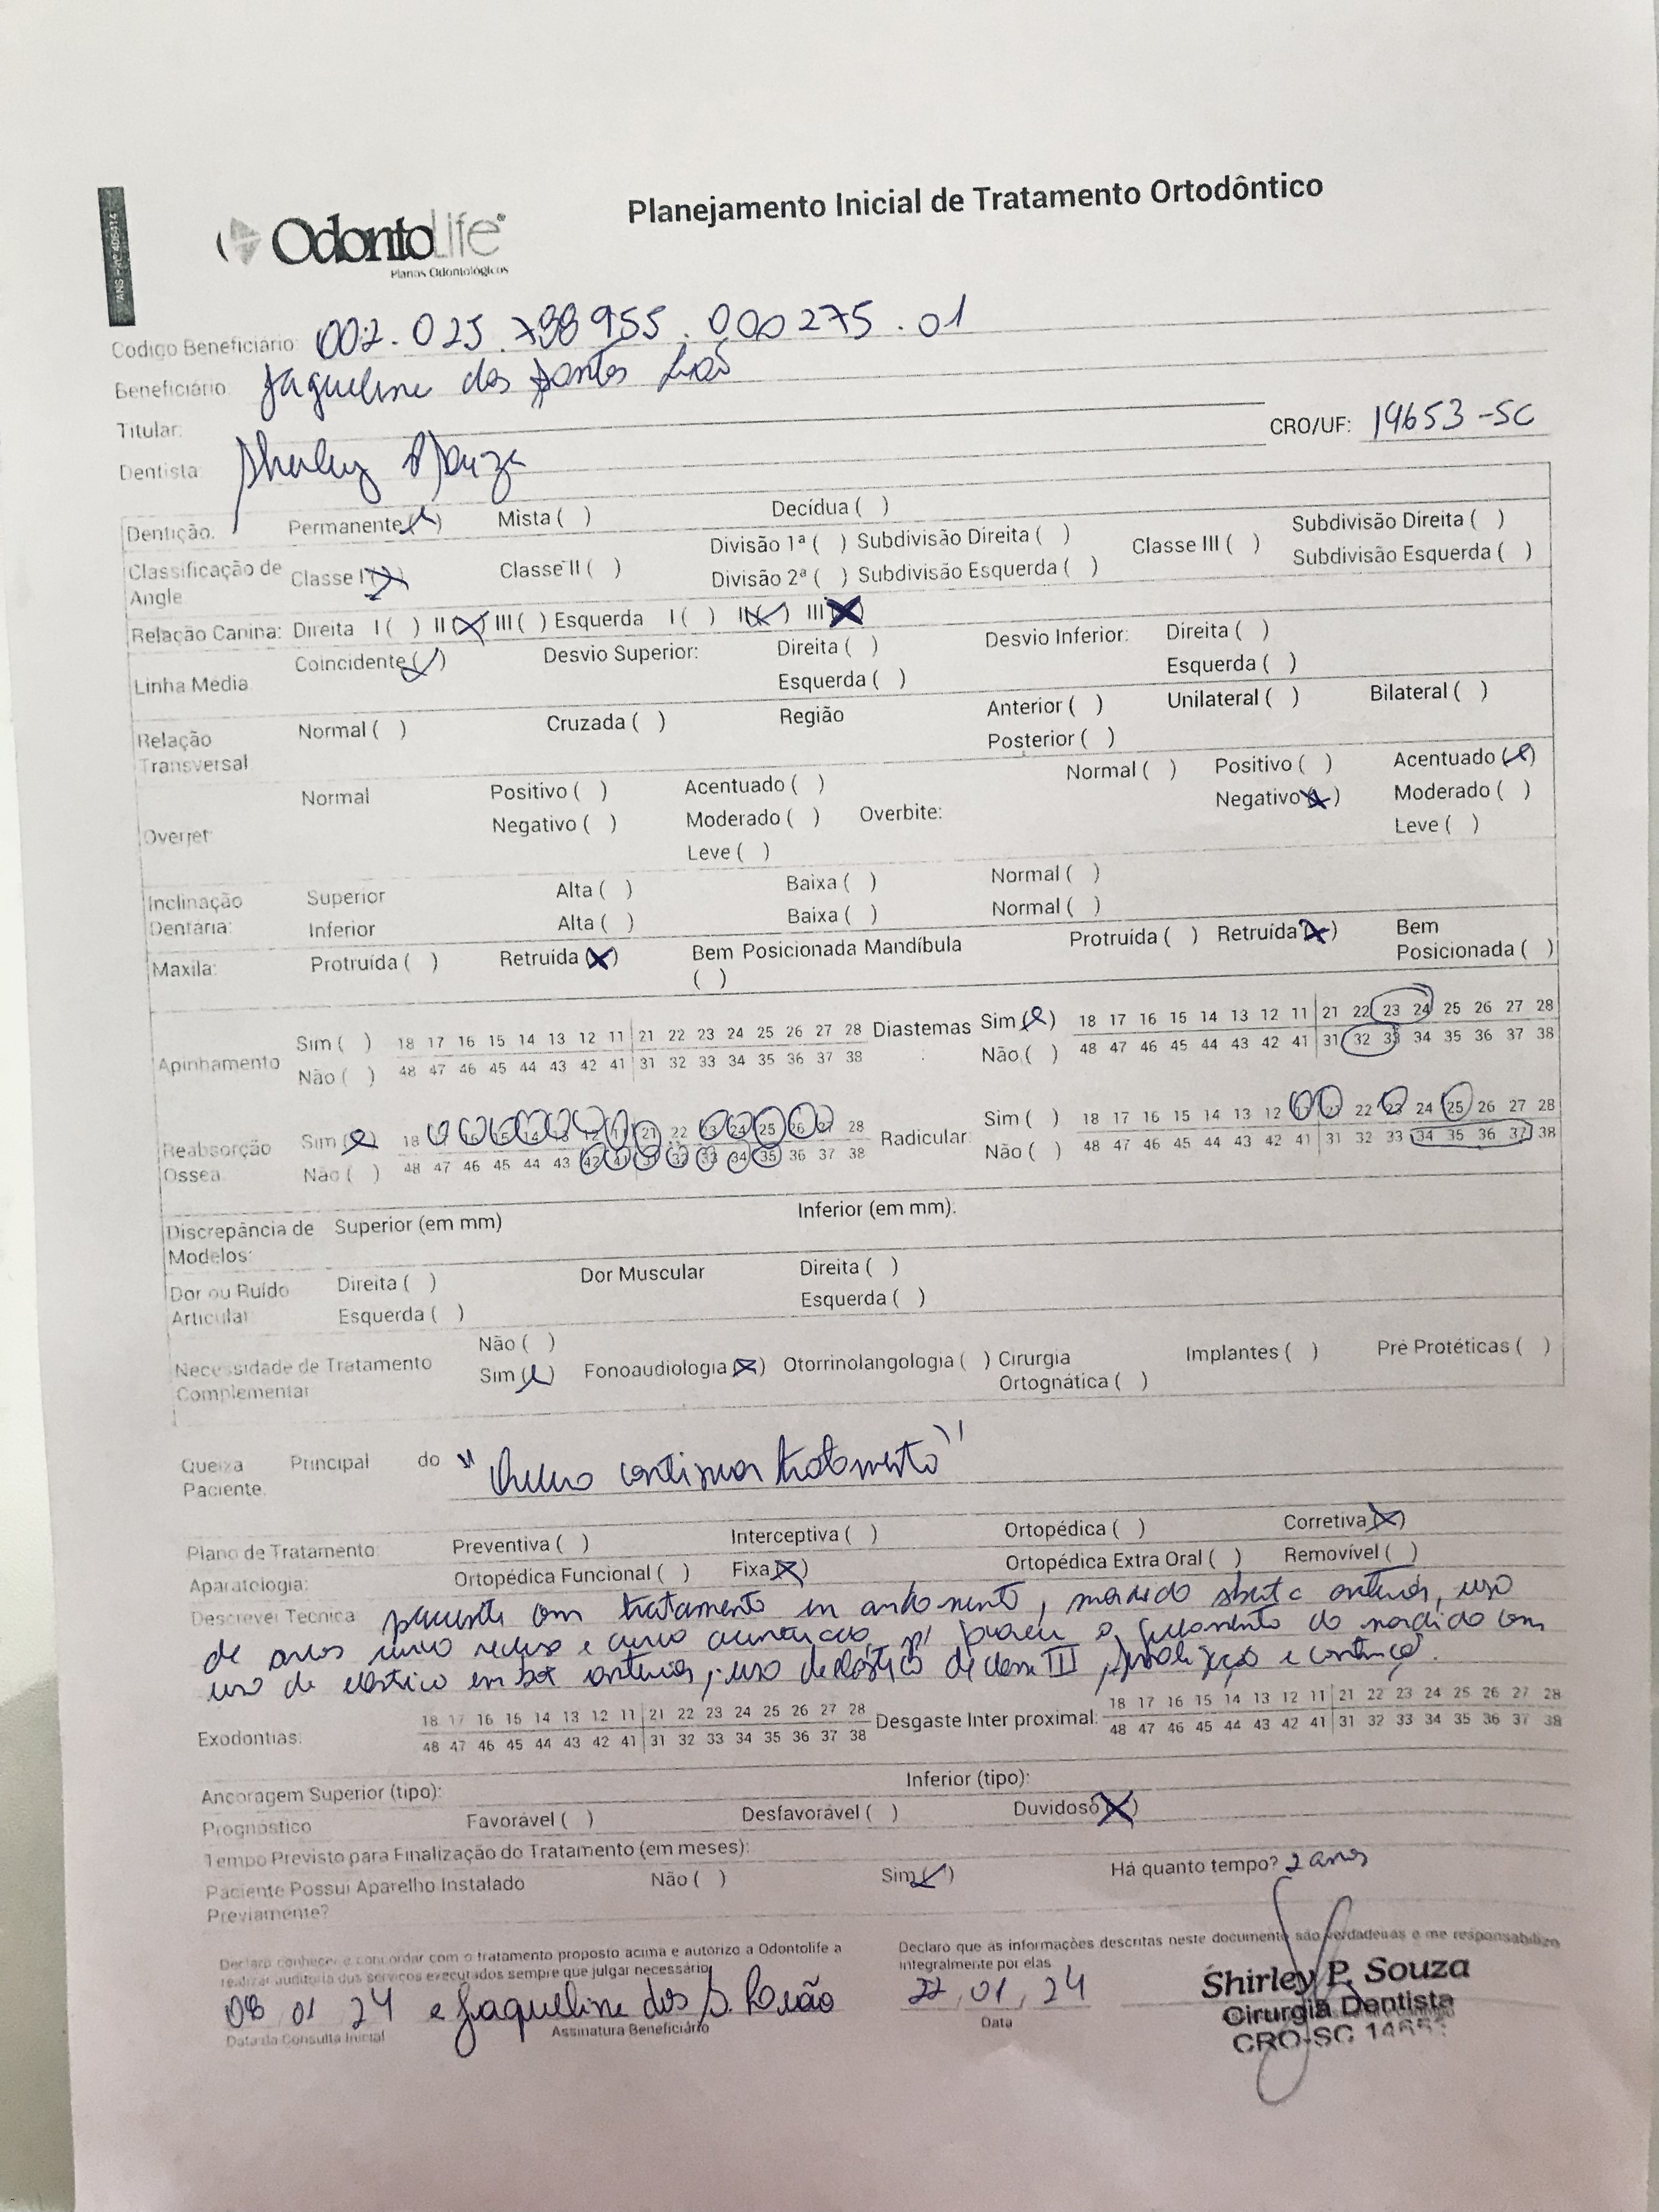 ANS - nº 406414
OdontoLife®
Planos Odontológicos
Planejamento Inicial de Tratamento Ortodôntico
Codigo Beneficiário: 002.025.798955.000275.01
Beneficiário: Jaqueline dos Santos
Titular:
CRO/UF: 14653-SC
Dentista: Shirley Souza
Dentição: Permanente ( ) Mista ( ) Decídua ( )
Classificação de Angle Classe I ( ) Classe II ( ) Divisão 1ª ( ) Subdivisão Direita ( ) Classe III ( ) Subdivisão Direita ( )
Divisão 2ª ( ) Subdivisão Esquerda ( ) Subdivisão Esquerda ( )
Relação Canina: Direita I ( ) II (X) III ( ) Esquerda I ( ) II (X) III (X)
Linha Média Coincidente ( ) Desvio Superior: Direita ( ) Desvio Inferior: Direita ( )
Esquerda ( ) Esquerda ( )
Relação Transversal Normal ( ) Cruzada ( ) Região Anterior ( ) Unilateral ( ) Bilateral ( )
Posterior ( )
Overjet: Normal Positivo ( ) Acentuado ( ) Overbite: Normal ( ) Positivo ( ) Acentuado ( )
Negativo ( ) Moderado ( ) Negativo (X) Moderado ( )
Leve ( ) Leve ( )
Inclinação Dentária: Superior Alta ( ) Baixa ( ) Normal ( )
Inferior Alta ( ) Baixa ( ) Normal ( )
Maxila: Protruída ( ) Retruída (X) Bem Posicionada ( ) Mandíbula Protruída ( ) Retruída (X) Bem Posicionada ( )
Apinhamento Sim ( ) 18 17 16 15 14 13 12 11 21 22 23 24 25 26 27 28 Diastemas Sim ( ) 18 17 16 15 14 13 12 11 21 22 23 24 25 26 27 28
Não ( ) 48 47 46 45 44 43 42 41 31 32 33 34 35 36 37 38 Não ( ) 48 47 46 45 44 43 42 41 31 32 33 34 35 36 37 38
Reabsorção Ossea Sim ( ) 18 17 16 15 14 13 12 11 21 22 23 24 25 26 27 28 Radicular: Sim ( ) 18 17 16 15 14 13 12 11 21 22 23 24 25 26 27 28
Não ( ) 48 47 46 45 44 43 42 41 31 32 33 34 35 36 37 38 Não ( ) 48 47 46 45 44 43 42 41 31 32 33 34 35 36 37 38
Discrepância de Modelos: Superior (em mm) Inferior (em mm):
Dor ou Ruído Articular Direita ( ) Dor Muscular Direita ( )
Esquerda ( ) Esquerda ( )
Necessidade de Tratamento Complementar Não ( )
Sim ( ) Fonoaudiologia (X) Otorrinolangologia ( ) Cirurgia Ortognática ( ) Implantes ( ) Pré Protéticas ( )
Queixa Principal do Paciente: "Quero continuar tratamento"
Plano de Tratamento: Preventiva ( ) Interceptiva ( ) Ortopédica ( ) Corretiva (X)
Aparatologia: Ortopédica Funcional ( ) Fixa (X) Ortopédica Extra Oral ( ) Removível ( )
Descrever Técnica paciente com tratamento em andamento, mordida aberta anterior, uso
de arcos curva reversa e curva acentuada p/ o fechamento da mordida com
uso de elástico em box anterior, uso de elástico de classe III, finalização e contenção.
Exodontias: 18 17 16 15 14 13 12 11 21 22 23 24 25 26 27 28 Desgaste Inter proximal: 18 17 16 15 14 13 12 11 21 22 23 24 25 26 27 28
48 47 46 45 44 43 42 41 31 32 33 34 35 36 37 38 48 47 46 45 44 43 42 41 31 32 33 34 35 36 37 38
Ancoragem Superior (tipo): Inferior (tipo):
Prognóstico Favorável ( ) Desfavorável ( ) Duvidoso (X)
Tempo Previsto para Finalização do Tratamento (em meses):
Paciente Possui Aparelho Instalado Previamente? Não ( ) Sim ( ) Há quanto tempo? 2 anos
Declaro conhecer e concordar com o tratamento proposto acima e autorizo a Odontolife a
realizar auditoria dos serviços executados sempre que julgar necessário
Declaro que as informações descritas neste documento são verdadeiras e me responsabilizo
integralmente por elas
08 01 24 Jaqueline dos S.
Data da Consulta Inicial Assinatura Beneficiário
22, 01, 24
Data
Shirley P. Souza
Cirurgiã Dentista
CRO-SC 14653